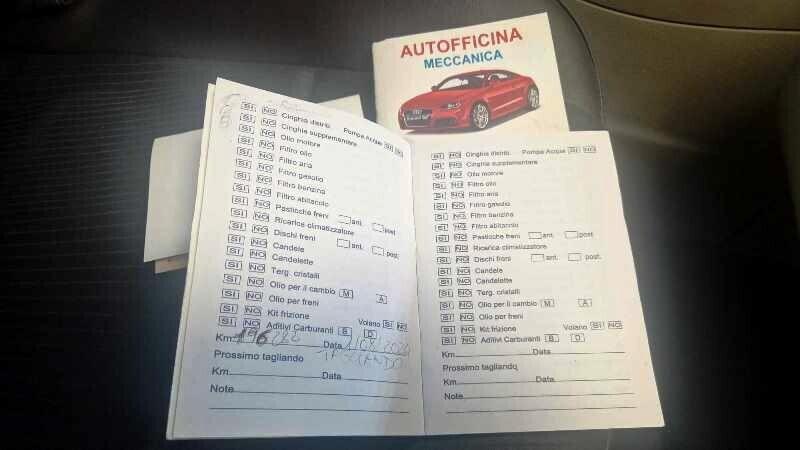 AUTOFFICINA
MECCANICA
SI NO Cinghia distrib. Pompa Acqua SI NO
SI NO Cinghia supplementare
SI NO Olio motore
SI NO Filtro olio
SI NO Filtro aria
SI NO Filtro gasolio
SI NO Filtro benzina
SI NO Filtro abitacolo
SI NO Pasticche freni ant. post
SI NO Ricarica climatizzatore
SI NO Dischi freni ant. post.
SI NO Candele
SI NO Candelette
SI NO Terg. cristalli
SI NO Olio per il cambio M A
SI NO Olio per freni
SI NO Kit frizione Volano SI NO
SI NO Aditivi Carburanti B D
Km. 196 Data
TAGLIANDO
Prossimo tagliando
Km. Data
Note
SI NO Cinghia distrib. Pompa Acqua SI NO
SI NO Cinghia supplementare
SI NO Olio motore
SI NO Filtro olio
SI NO Filtro aria
SI NO Filtro gasolio
SI NO Filtro benzina
SI NO Filtro abitacolo
SI NO Pasticche freni ant. post
SI NO Ricarica climatizzatore
SI NO Dischi freni ant. post.
SI NO Candele
SI NO Candelette
SI NO Terg. cristalli
SI NO Olio per il cambio M A
SI NO Olio per freni
SI NO Kit frizione Volano SI NO
SI NO Aditivi Carburanti B D
Km. Data
Prossimo tagliando
Km. Data
Note